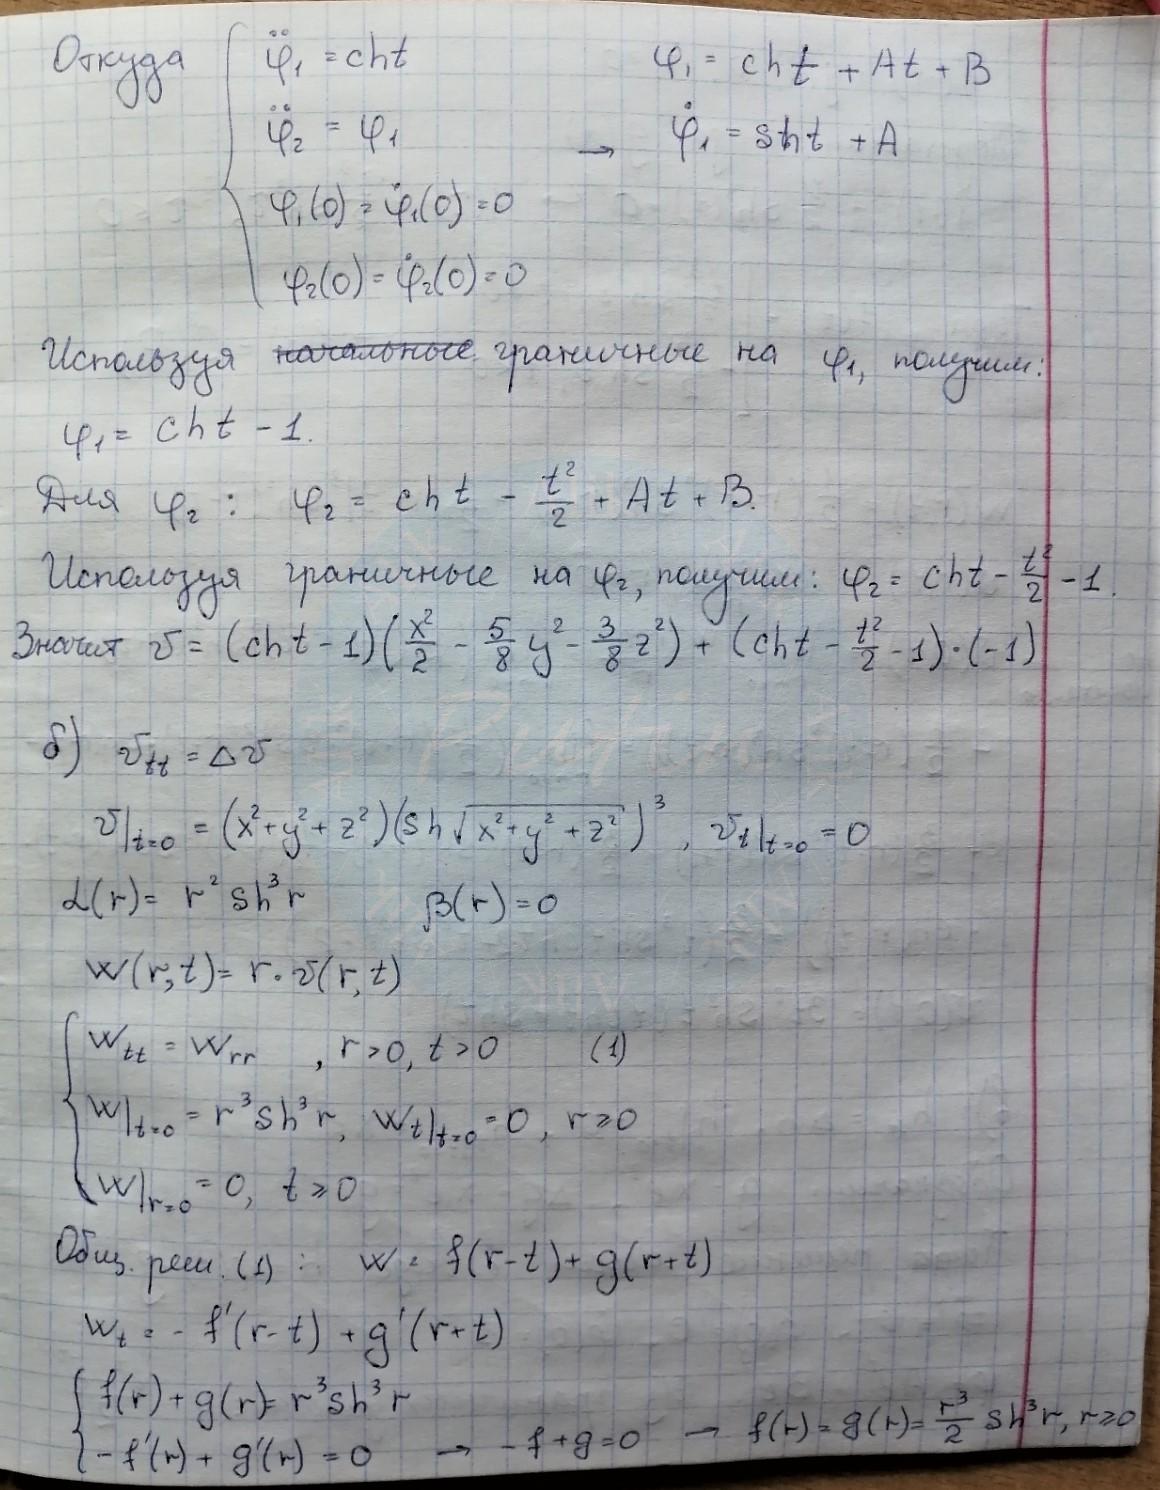 Откуда { φ̈₁ = cht    φ₁ = cht + At + B
φ̈₂ = φ₁ → φ̇₁ = sht + A
φ₁(0) = φ̇₁(0) = 0
φ₂(0) = φ̇₂(0) = 0
Используя граничные на φ₁, получим:
φ₁ = cht - 1.
Для φ₂: φ₂ = cht - t²/2 + At + B.
Используя граничные на φ₂, получим: φ₂ = cht - t²/2 - 1.
Значит v = (cht - 1)(x²/2 - 5/8 y² - 3/8 z²) + (cht - t²/2 - 1)·(-1)
б) v_tt = Δv
v|_t=0 = (x² + y² + z²)(sh√(x² + y² + z²))³, v_t|_t=0 = 0
α(r) = r² sh³r    β(r) = 0
w(r,t) = r·v(r,t)
{ w_tt = w_rr , r>0, t>0 (1)
w|_t=0 = r³sh³r, w_t|_t=0 = 0, r⩾0
w|_r=0 = 0, t⩾0
Общ. реш. (1): w = f(r-t) + g(r+t)
w_t = -f'(r-t) + g'(r+t)
{ f(r) + g(r) = r³sh³r
-f'(r) + g'(r) = 0 → -f+g=0 → f(r) = g(r) = r³/2 sh³r, r⩾0